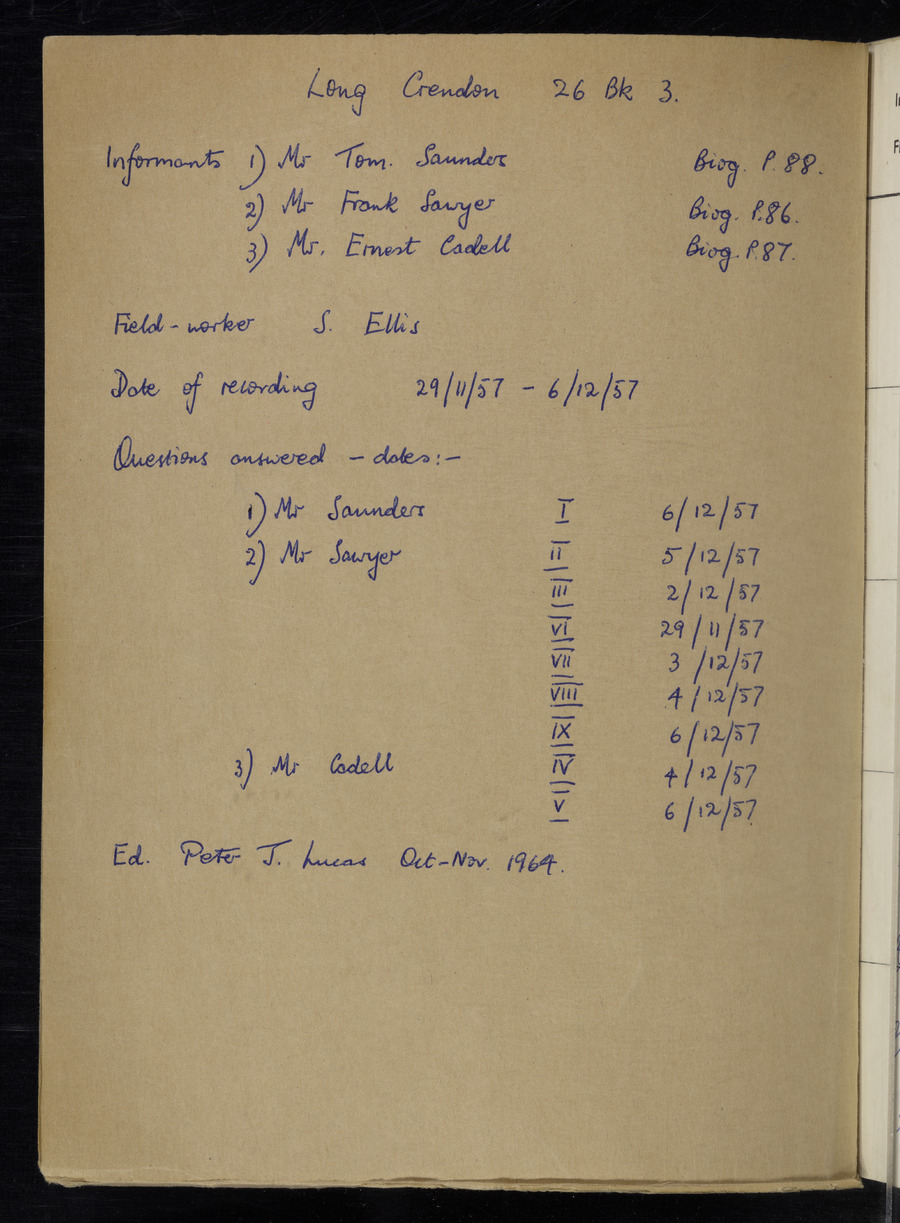 Long Crendon 26 Bk 3.
Informants 1) Mr Tom. Saunders Biog. P. 88.
2) Mr Frank Sawyer Biog. P.86.
3) Mr. Ernest Cadell Biog. P.87.
Field-worker S. Ellis
Date of recording 29/11/57 – 6/12/57
Questions answered – dates:–
1) Mr Saunders I 6/12/57
2) Mr Sawyer II 5/12/57
III 2/12/57
VI 29/11/57
VII 3/12/57
VIII 4/12/57
IX 6/12/57
3) Mr Cadell IV 4/12/57
V 6/12/57
Ed. Peter J. Lucas Oct–Nov. 1964.